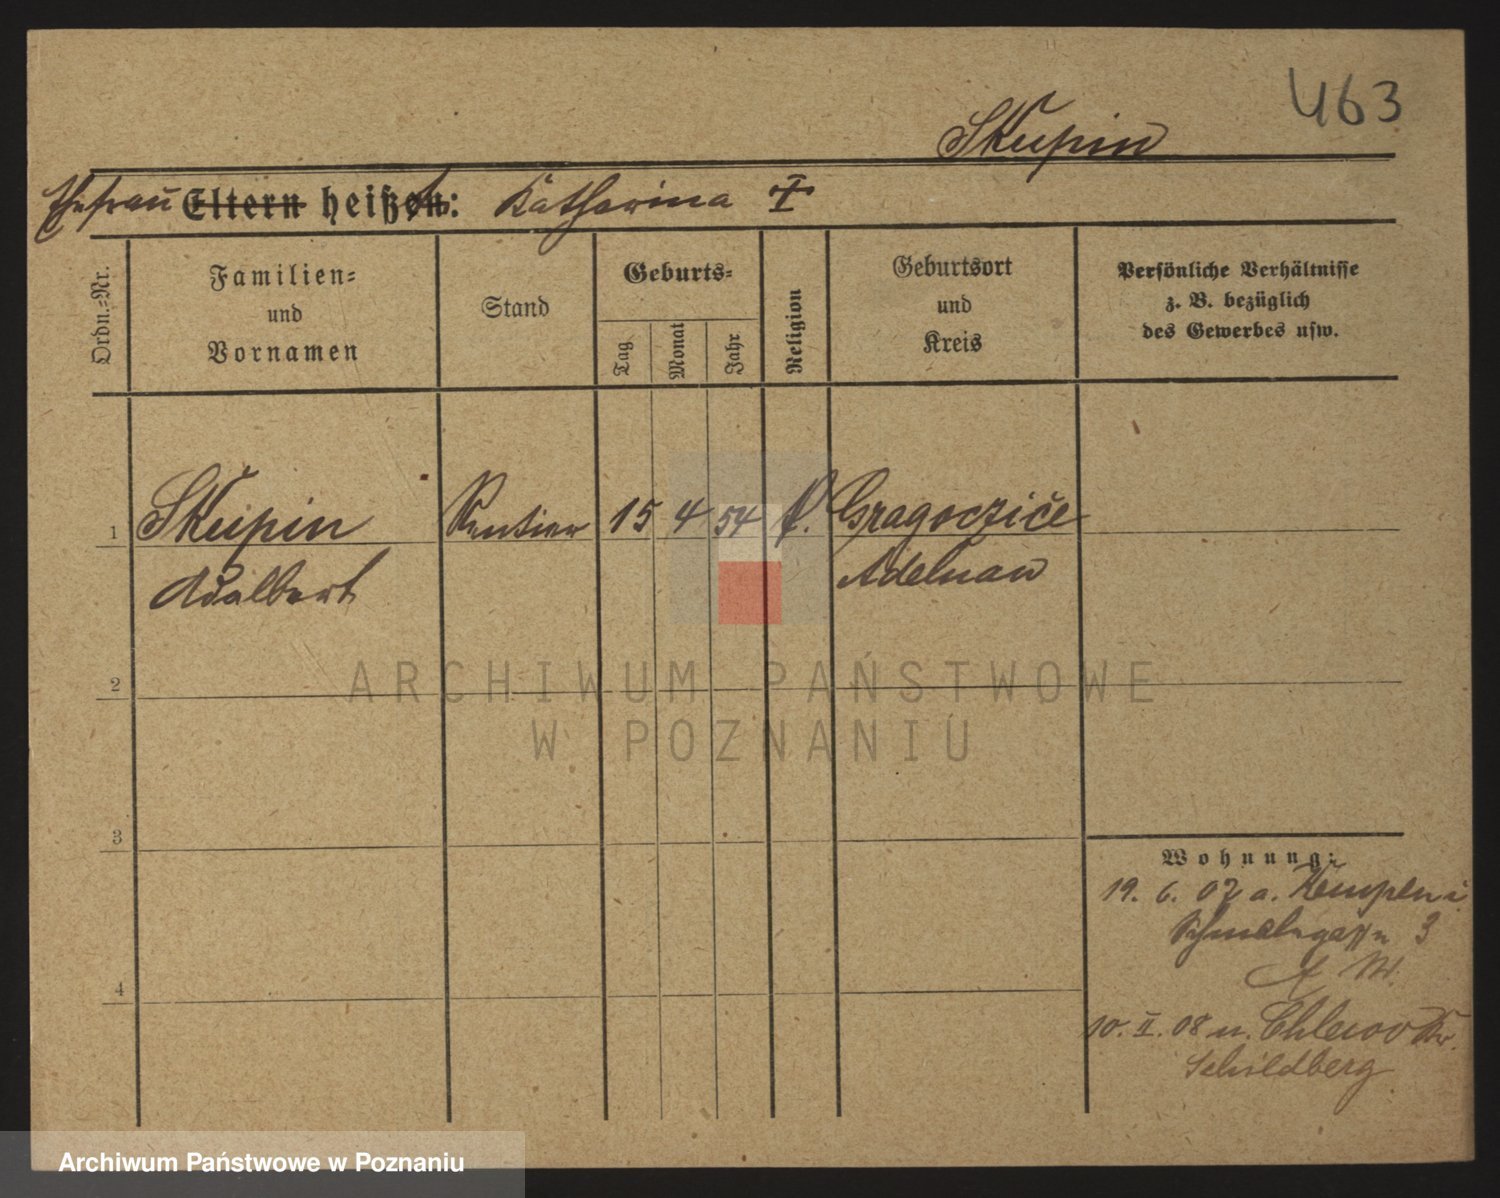 463
Skupin
Ehefrau Eltern heißen: Katharina I
Ordn.-Nr.
Familien-
und
Vornamen
Stand
Geburts-
Tag
Monat
Jahr
Religion
Geburtsort
und
Kreis
Persönliche Verhältnisse
z. B. bezüglich
des Gewerbes usw.
1 Skupin Rentier 15 4 54
Adalbert Adelnau
2
3
4
Wohnung:
19. 6. 07 a. Kempen i.
3
10. II. 08 n. Chlewo Kr.
Schildberg
ARCHIWUM PAŃSTWOWE
W POZNANIU
Archiwum Państwowe w Poznaniu